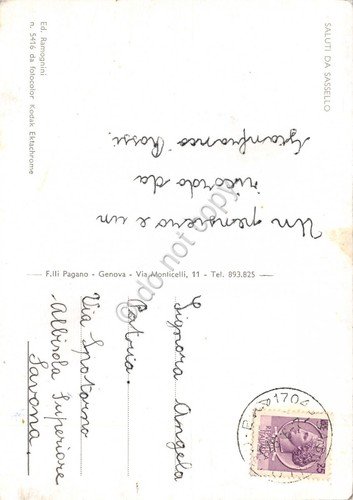 SALUTI DA SASSELLO
Un pensiero e un
ricordo da
Gianfranco Rossi.
Ed. Ramognini
n. 5416 da fotocolor Kodak Ektachrome
F.lli Pagano - Genova - Via Monticelli, 11 - Tel. 893.825
Signora Angela
Patria.
Via Spotorno
Albisola Superiore
Savona
do not copy